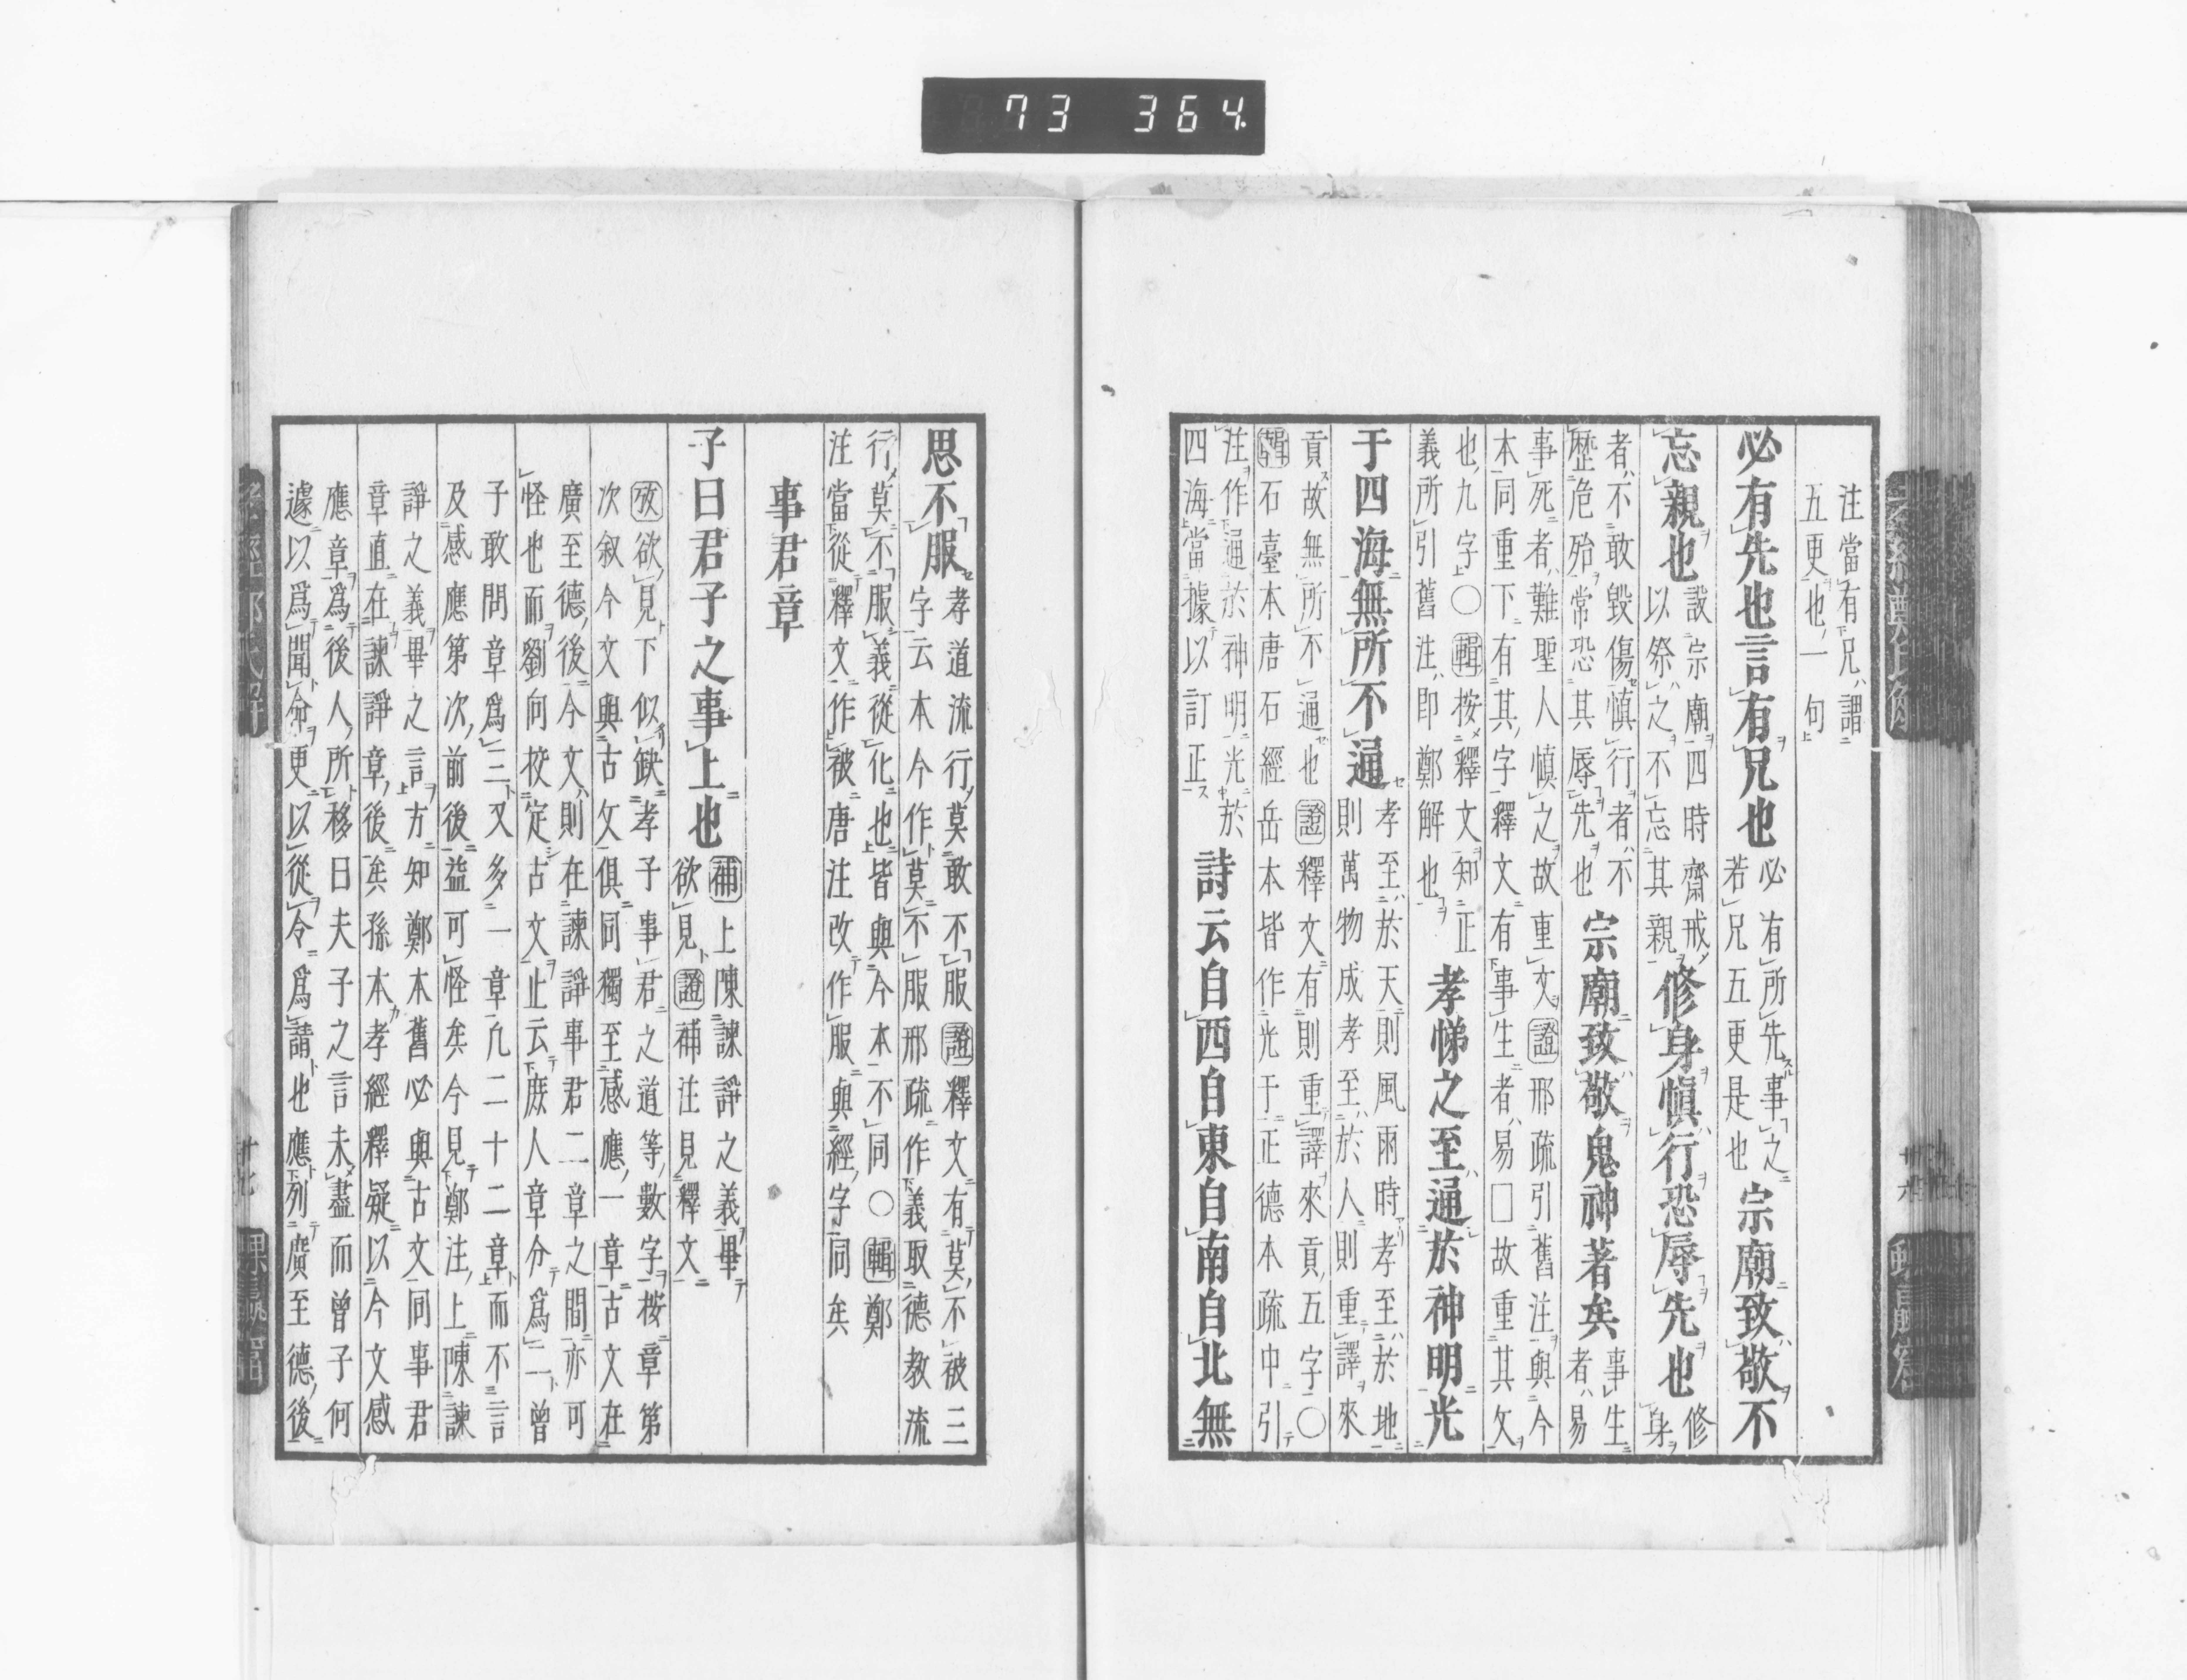 73 364
注當有兄謂
五更也一句
必有先也言有兄也
必有所先事之
若兄五更是也
宗廟致敬不
忘親也
設宗廟四時齋戒
以祭之不忘其親
修身愼行恐辱先也
修
身
者不敢毀傷愼行者不
歷危殆常恐其辱先也
宗廟致敬鬼神著矣
事生
者易
事死者難聖人愼之故重文證邢疏引舊注與今
本同重下有其字釋文有事生者易□故重其文
也九字○輯按釋文知正
義所引舊注即鄭解也
孝悌之至通於神明光
于四海無所不通
孝至於天則風雨時孝至於地
則萬物成孝至於人則重譯來
貢故無所不通也證釋文有則重譯來貢五字○
輯石臺本唐石經岳本皆作光于正德本疏中引
注作通於神明光於
四海當據以訂正
詩云自西自東自南自北無
思不服
孝道流行莫敢不服證釋文有莫不被三
字云本今作莫不服邢疏作義取德教流
行莫不服義從化也皆與今本不同○輯鄭
注當從釋文作被唐注改作服與經字同矣
事君章
子曰君子之事上也
補上陳諫諍之義畢
欲見證補注見釋文
攷欲見下似缺孝子事君之道等數字按章第
次叙今文與古文俱同獨至感應一章古文在
廣至德後今文則在諫諍事君二章之間亦可
怪也而劉向挍定古文止云庶人章分爲二曾
子敢問章爲三又多一章凡二十二章而不言
及感應第次前後益可怪矣今見鄭注上陳諫
諍之義畢之言方知鄭本舊必與古文同事君
章直在諫諍章後矣孫本孝經釋疑以今文感
應章爲後人所移曰夫子之言未盡而曾子何
遽以爲聞命更以從令爲請也應列廣至德後